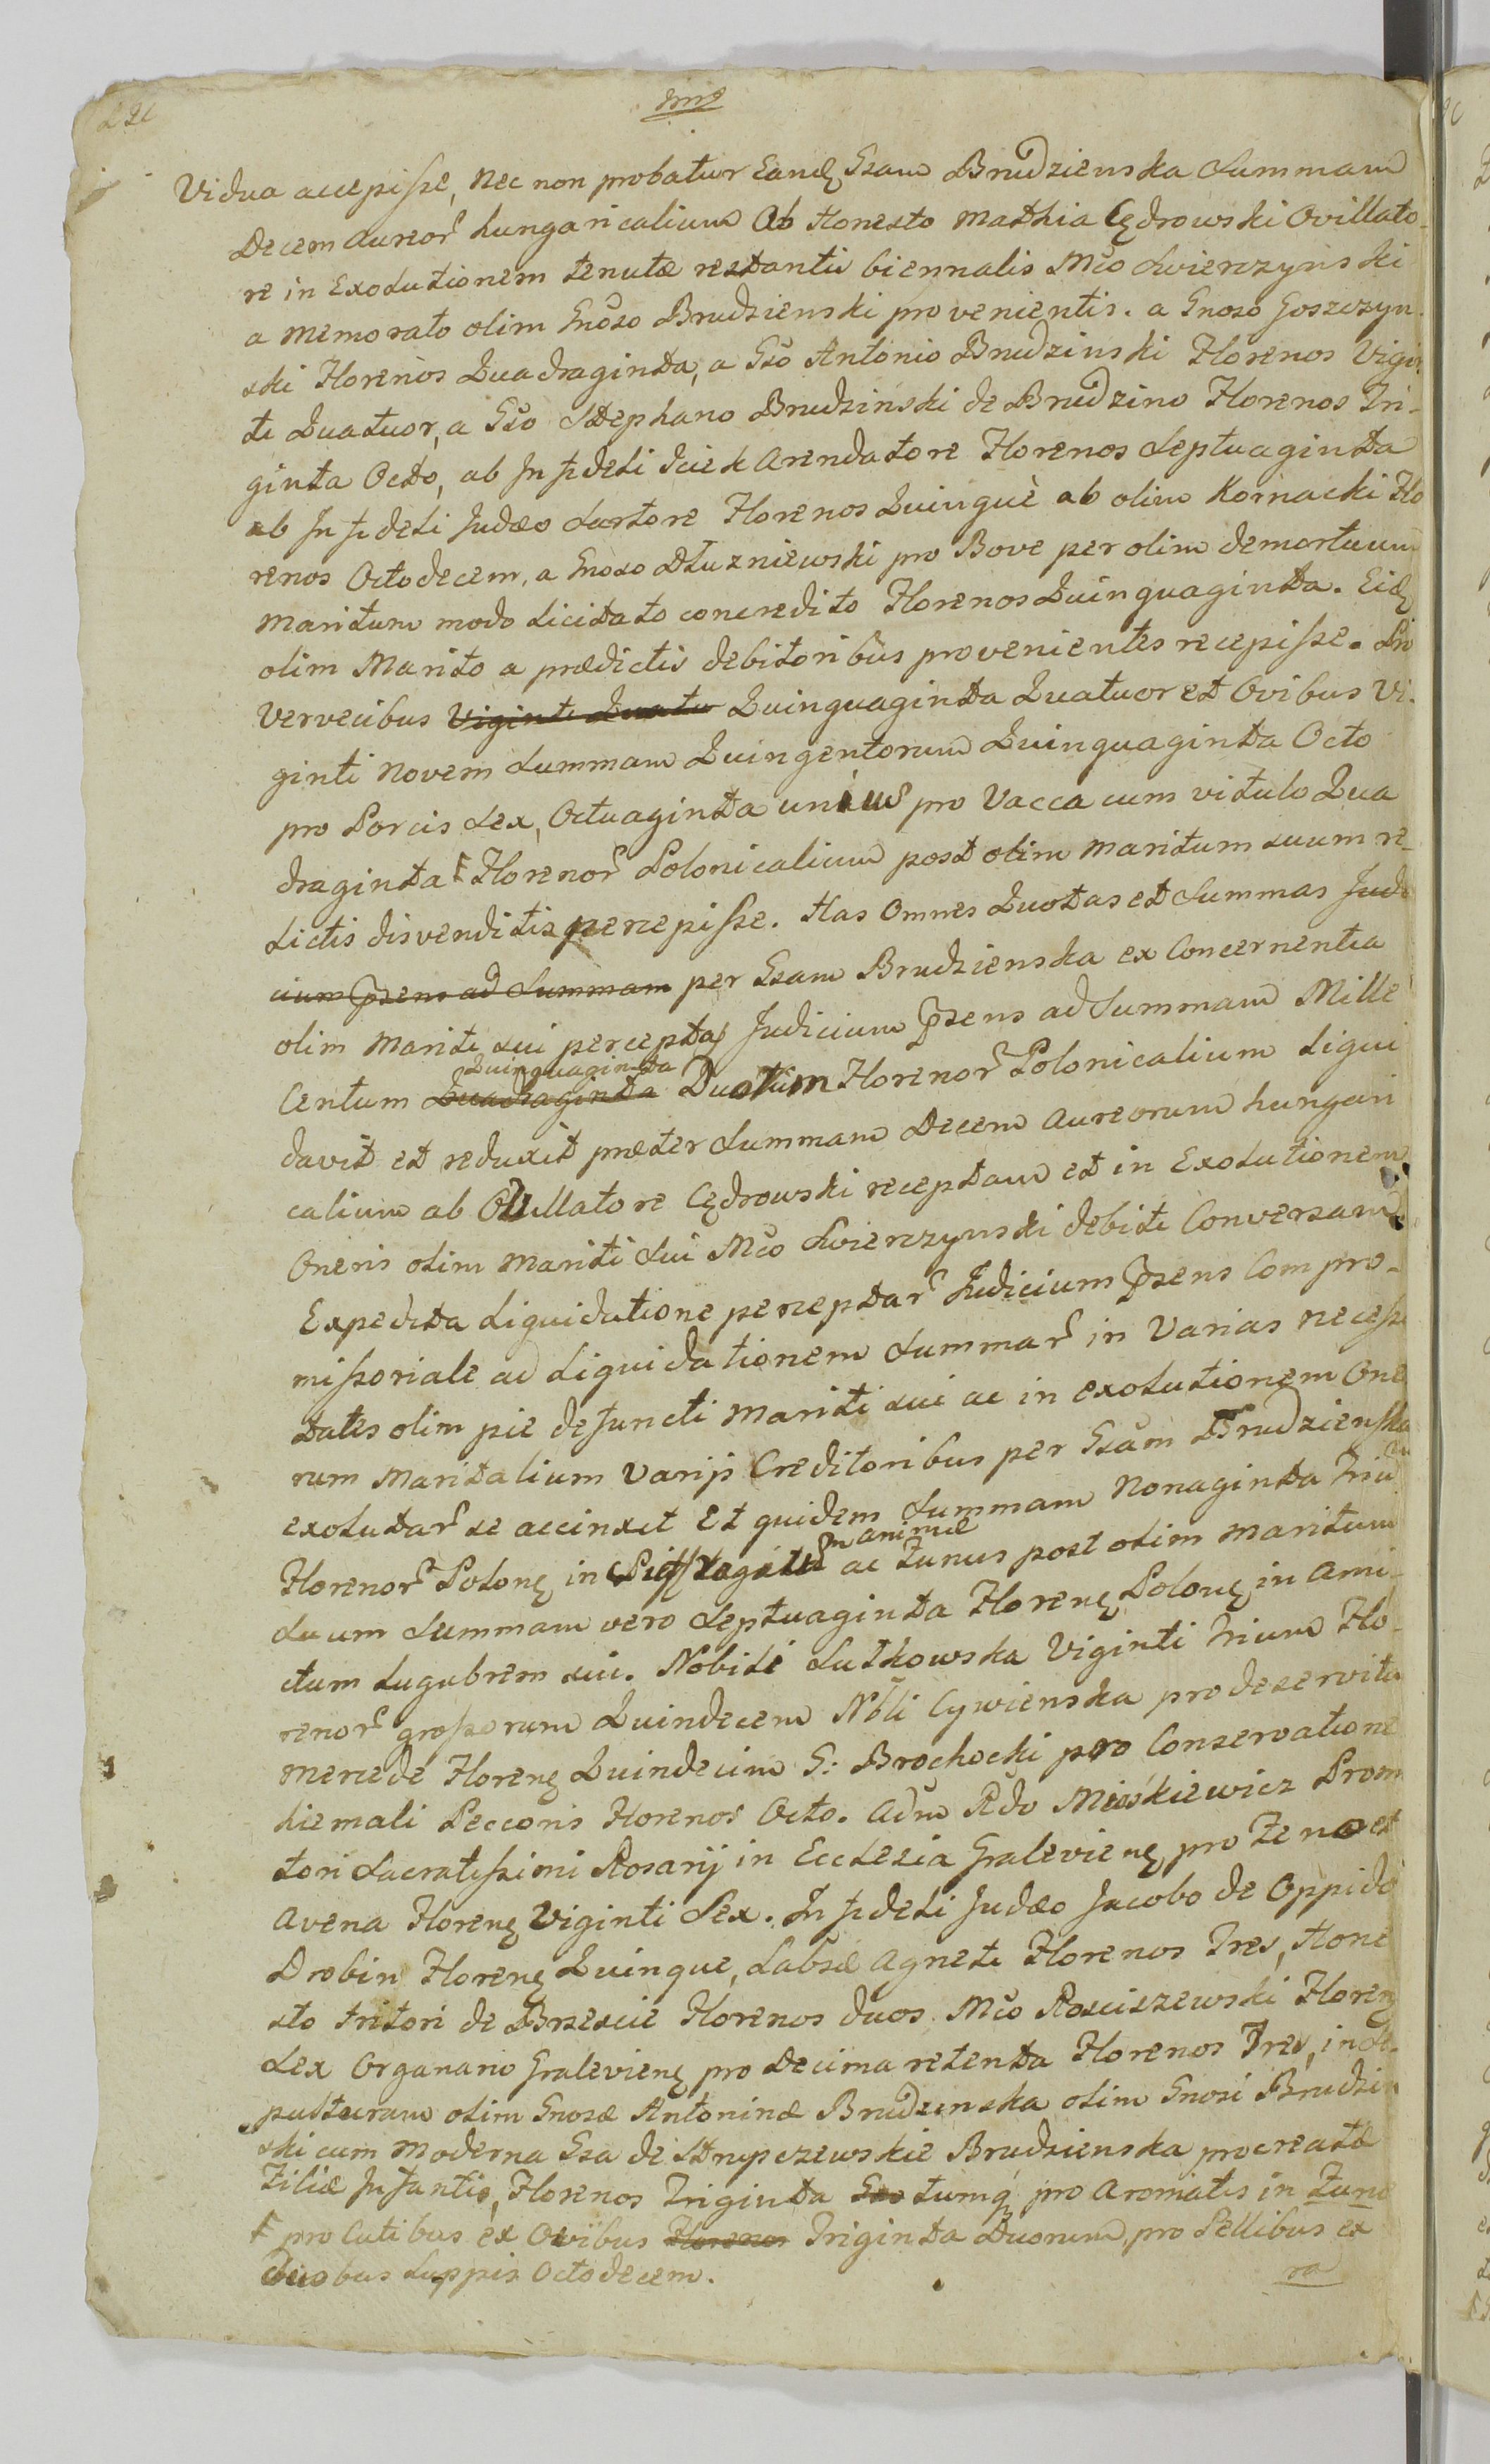 Vidua accepisse, nec non probatur Eand. Gsam Brudzienska Summam
Decem aureor. hungaricalium Ab Honesto Mathia Cędrowski Ovillato-
re in Exolutionem tenutæ restantis biennalis Mco Swierczynski
a memorato olim Gnoso Brudzienski provenientis. a Gnoso Goszczyn-
ski Florenos Quadraginta, a Gso Antonio Brudzinski Florenos Vigin-
ti Quatuor, a Gso Stephano Brudzinski de Brudzino Florenos Tri-
ginta Octo, ab Infideli Icick Arendatore Florenos Septuaginta
ab Infideli Judæo Sartore Florenos Quinque ab olim Kornacki Flo
renos Octodecem, a Gnoso Dłuzniewski pro Bove per olim demortuum
Maritum modo licitato concredito Florenos Quinquaginta. Eid.
olim Marito a prædictis debitoribus provenientes recepisse. Pro
Vervecibus Viginti Quatu Quinquaginta Quatuor et Ovibus Vi-
ginti Novem Summam Quingentorum Quinquaginta Octo
pro Porcis Sex, Octuaginta unius pro Vacca cum vitulo Qua
draginta Florenor. Polonicalium post olim Maritum suum re-
lictis disvenditis percepisse. Has Omnes Quotas et Summas Judi
cium Psens ad Summam per Gsam Brudzienska ex Concernentia
olim Mariti sui perceptas Judicium Psens ad Summam Mille
Quinquaginta
Centum Quadraginta Duorum Florenor. Polonicalium liqui
davit et reduxit præter Summam Decem Aureorum hungari
calium ab Ovillatore Cędrowski receptam et in Exolutionem
Oneris olim Mariti Sui Mco Swierczynski debiti Conversam.
Expedita Liquidatione perceptar. Judicium Psens Compro-
missoriale ad Liquidationem Summar. in Varias necessi
tates olim pie defuncti Mariti sui ac in exolutionem One
rum Maritalium Varijs Creditoribus per Gsam Brudzienska
exolutar. se accinxit Et quidem Summam Nonaginta Trium
m animæ
Florenor. Polon. in ac Funus post olim Maritum
Suum Summam vero Septuaginta Floren. Polon. in Ami-
ctum Lugubrem sui. Nobili Lutkowska Viginti Trium Flo-
renor. grossorum Quindecem Nbli Cywienska pro deservitu
Mercede Floren. Quindecim G: Brochocki pro Conservatione
hiemali Peccoris Florenos Octo. Adm Rdo Mieskiewicz Prom
tori Sacratissimi Rosarij in Ecclesia Gralevien. pro Feno et
Avena Floren. Viginti Sex. Infideli Judæo Jacobo de Oppido
Drobin Floren. Quinque, Labsæ Agneti Florenos Tres, Hone
sto tritori de Brzescie Florenos duos. Mco Rosciszewski Floren.
Sex Organario Gralevien. pro Decima retenta Florenos Tres, in Se-
pulturam olim Gnosæ Antoninæ Brudzinska olim Gnosi Brudzin
ski cum Moderna Gsa de Strupczewskie Brudzienska procreatæ
Filiæ Infantis, Florenos Triginta tumq. pro Aromatis in Fune
pro Cutibus ex Ovibus Florenos Triginta Duorum, pro Pellibus ex
duobus Luppis Octodecem.
ra